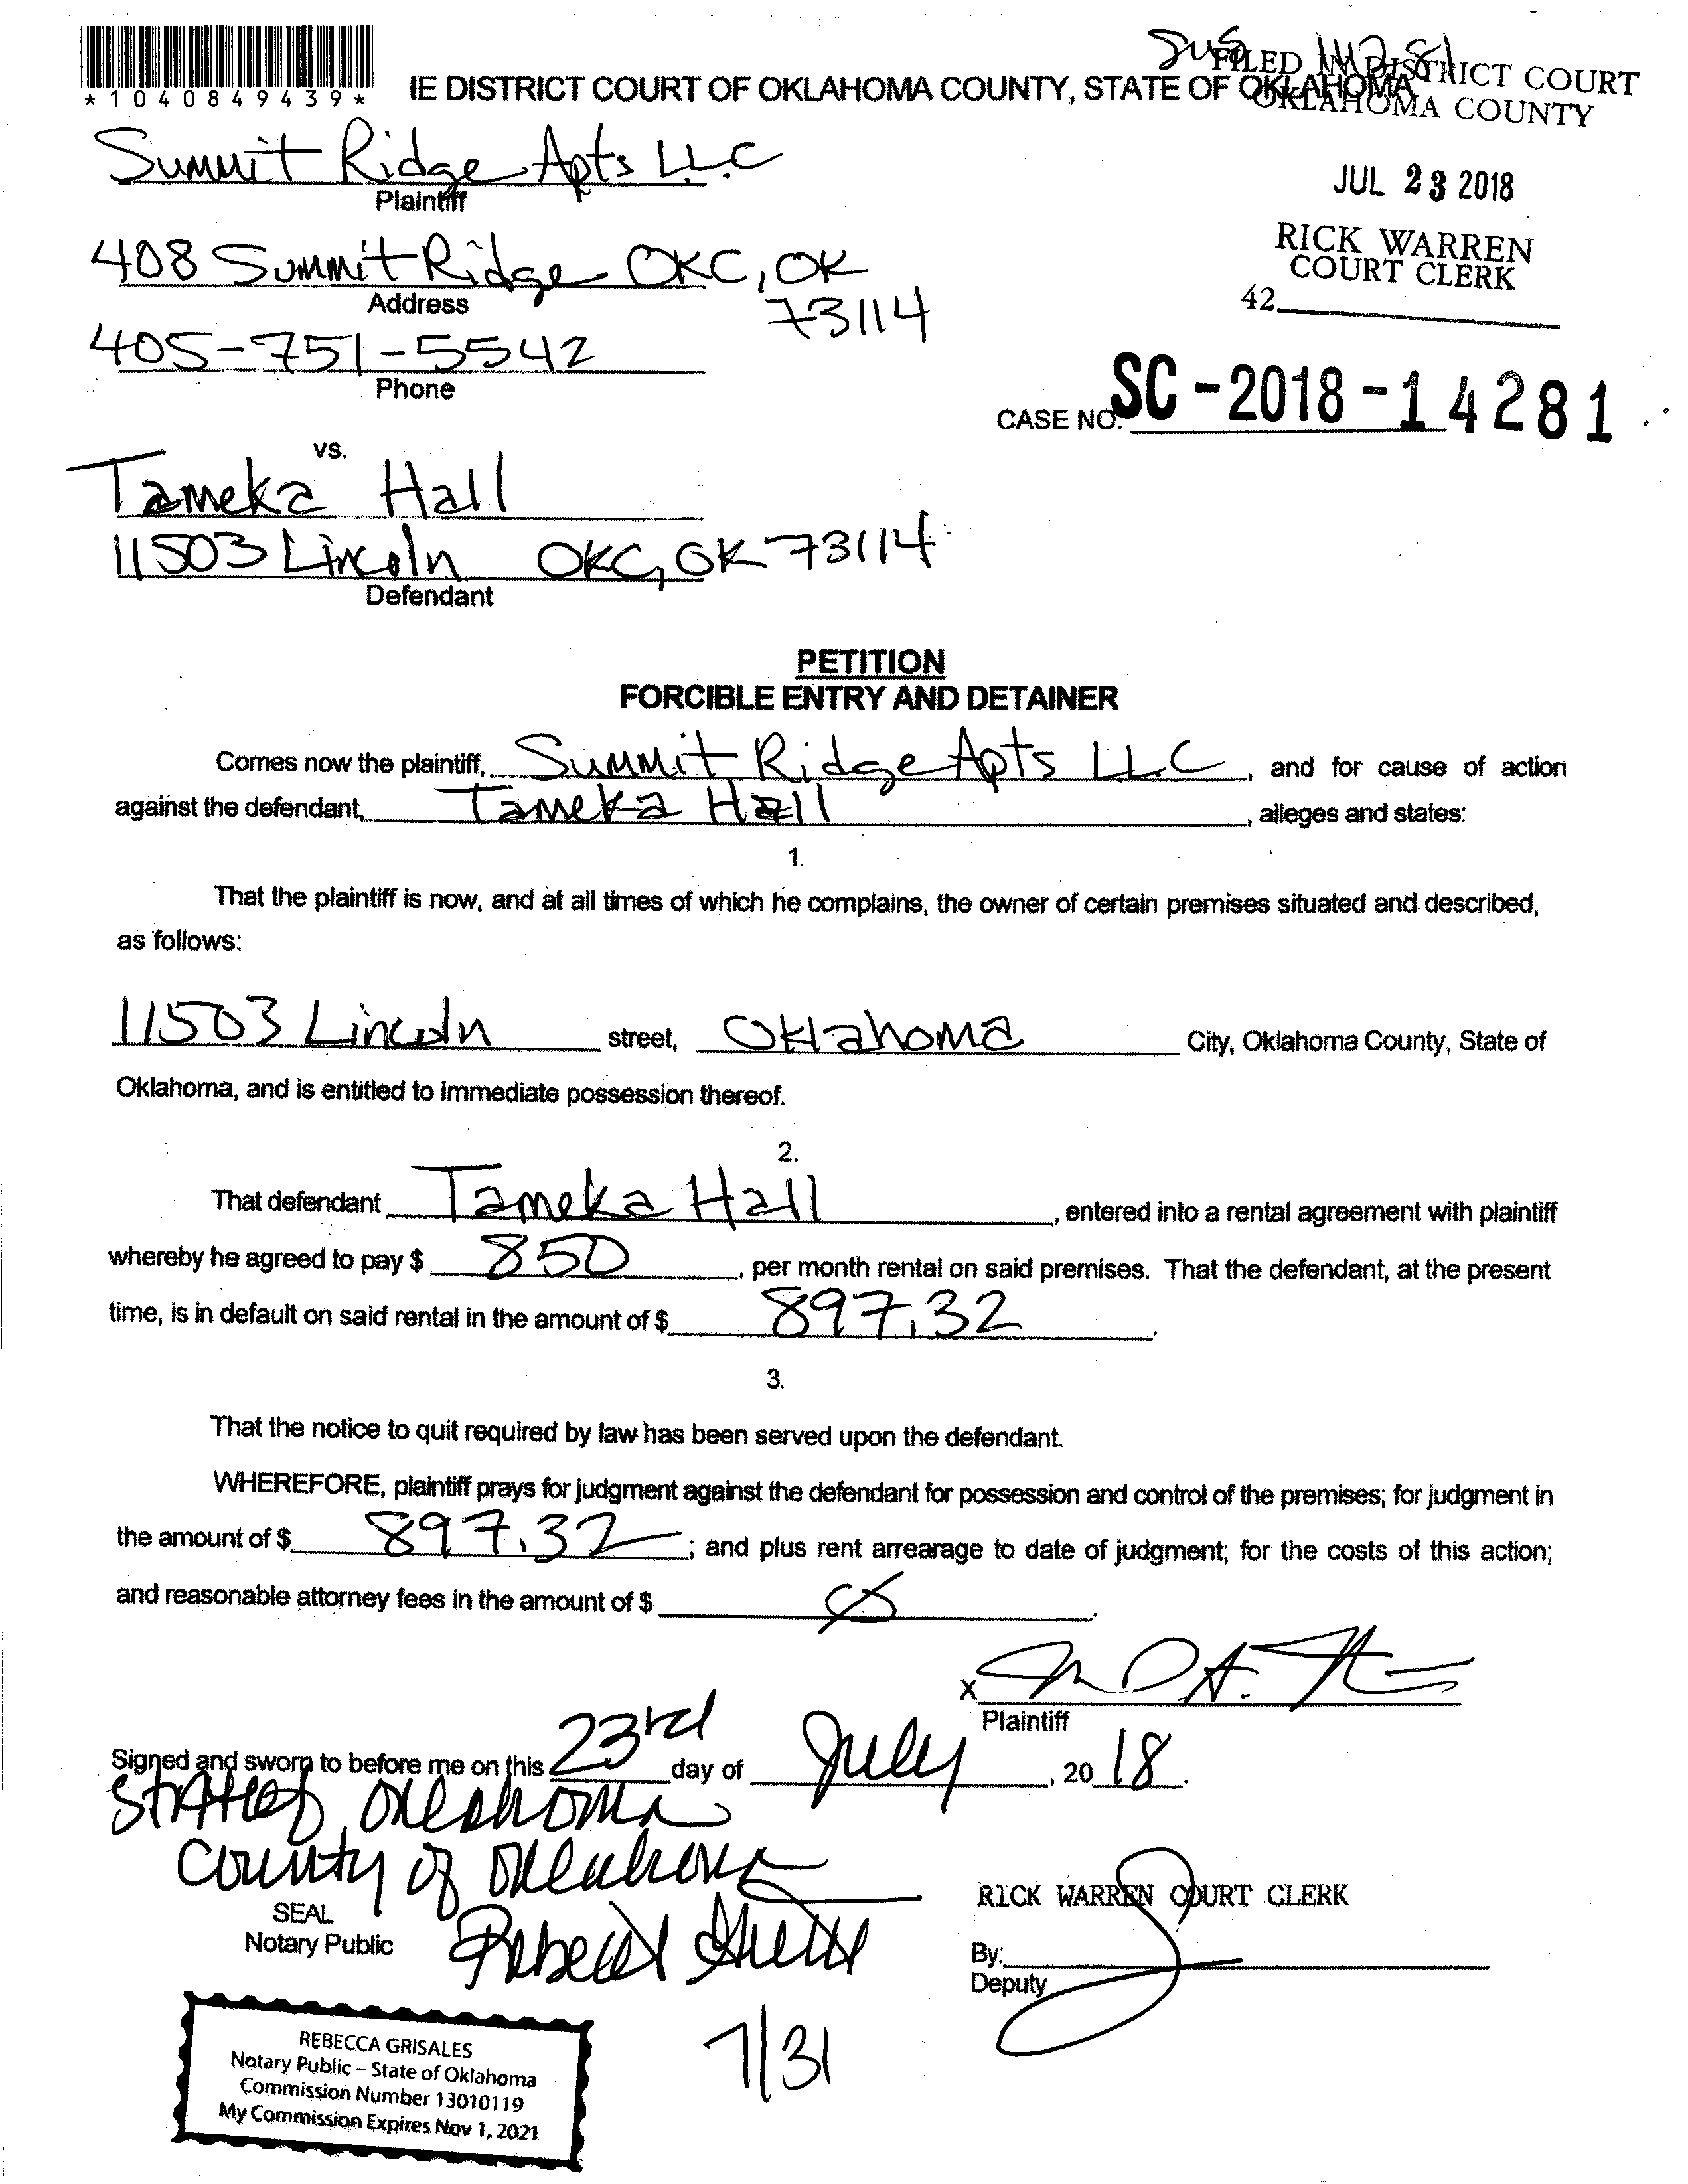 *1040849439*
IE DISTRICT COURT OF OKLAHOMA COUNTY, STATE OF OKLAHOMA
14281
FILED IN DISTRICT COURT
OKLAHOMA COUNTY
JUL 23 2018
RICK WARREN
COURT CLERK
42
Summit Ridge Apts LLC
Plaintiff
408 Summit Ridge OKC, OK
73114
Address
405-751-5542
Phone
CASE NO. SC-2018-14281
vs.
Tameka Hall
11503 Lincoln OKC, OK 73114
Defendant
PETITION
FORCIBLE ENTRY AND DETAINER
Comes now the plaintiff, Summit Ridge Apts LLC, and for cause of action
against the defendant, Tameka Hall, alleges and states:
1.
That the plaintiff is now, and at all times of which he complains, the owner of certain premises situated and described,
as follows:
11503 Lincoln street, Oklahoma City, Oklahoma County, State of
Oklahoma, and is entitled to immediate possession thereof.
2.
That defendant Tameka Hall, entered into a rental agreement with plaintiff
whereby he agreed to pay $ 850, per month rental on said premises. That the defendant, at the present
time, is in default on said rental in the amount of $ 897.32.
3.
That the notice to quit required by law has been served upon the defendant.
WHEREFORE, plaintiff prays for judgment against the defendant for possession and control of the premises; for judgment in
the amount of $ 897.32; and plus rent arrearage to date of judgment; for the costs of this action;
and reasonable attorney fees in the amount of $ Ø.
X
Plaintiff
Signed and sworn to before me on this 23rd day of July, 20 18.
State of Oklahoma
County of Oklahoma
SEAL
Notary Public
RICK WARREN COURT CLERK
By:
Deputy
REBECCA GRISALES
Notary Public – State of Oklahoma
Commission Number 13010119
My Commission Expires Nov 1, 2021
7/31